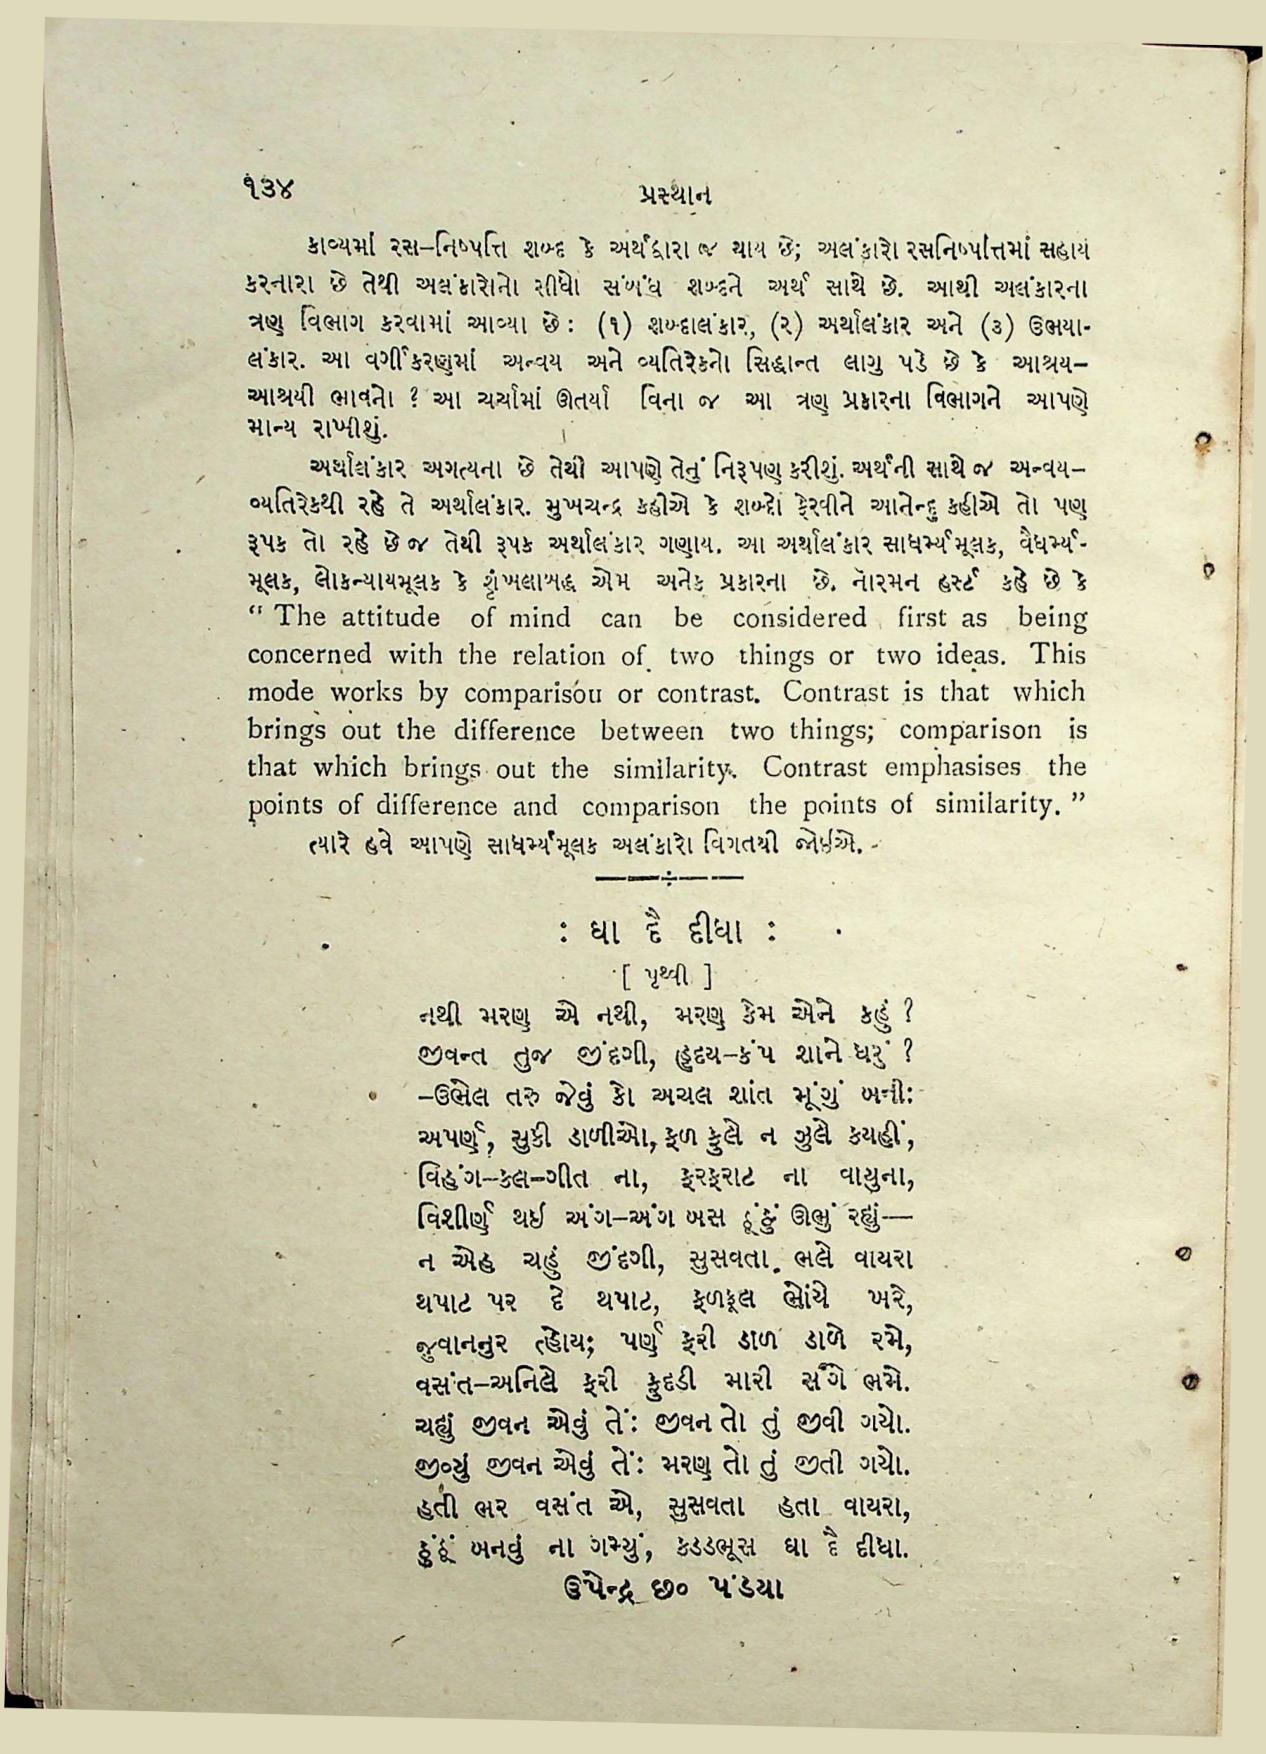 ૧૩૪ પ્રસ્થાન
કાવ્યમાં રસ–નિષ્પત્તિ શબ્દ કે અર્થદ્વારા જ થાય છે; અલંકારો રસનિષ્પત્તિમાં સહાય
કરનારા છે તેથી અલંકારોનો સીધો સંબંધ શબ્દને અર્થ સાથે છે. આથી અલંકારના
ત્રણ વિભાગ કરવામાં આવ્યા છે: (૧) શબ્દાલંકાર, (૨) અર્થાલંકાર અને (૩) ઉભયા-
લંકાર. આ વર્ગીકરણમાં અન્વય અને વ્યતિરેકનો સિદ્ધાન્ત લાગુ પડે છે કે આશ્રય–
આશ્રયી ભાવનો ? આ ચર્ચામાં ઊતર્યા વિના જ આ ત્રણ પ્રકારના વિભાગને આપણે
માન્ય રાખીશું.
અર્થાલંકાર અગત્યના છે તેથી આપણે તેનું નિરૂપણ કરીશું. અર્થની સાથે જ અન્વય–
વ્યતિરેકથી રહે તે અર્થાલંકાર. મુખચન્દ્ર કહીએ કે શબ્દો ફેરવીને આનેન્દુ કહીએ તો પણ
રૂપક તો રહે છે જ તેથી રૂપક અર્થાલંકાર ગણાય. આ અર્થાલંકાર સાધર્મ્યમૂલક, વૈધર્મ્ય-
મૂલક, લોકન્યાયમૂલક કે શૃંખલાબદ્ધ એમ અનેક પ્રકારના છે. નૉરમન હર્સ્ટ કહે છે કે
“ The attitude of mind can be considered first as being
concerned with the relation of two things or two ideas. This
mode works by comparison or contrast. Contrast is that which
brings out the difference between two things; comparison is
that which brings out the similarity. Contrast emphasises the
points of difference and comparison the points of similarity. ”
ત્યારે હવે આપણે સાધર્મ્યમૂલક અલંકારો વિગતથી જોઇએ.
: ઘા દૈ દીધા :
[ પૃથ્વી ]
નથી મરણ એ નથી, મરણ કેમ એને કહું ?
જીવન્ત તુજ જીંદગી, હૃદય–કંપ શાને ધરું ?
–ઉભેલ તરુ જેવું કો અચલ શાંત મૂંગું બની:
અપર્ણ, સુકી ડાળીઓ, ફળ ફુલે ન ઝુલે કયહીં,
વિહંગ–કલ–ગીત ના, ફરફરાટ ના વાયુના,
વિશીર્ણ થઇ અંગ–અંગ બસ ઠૂંઠું ઊભું રહ્યું—
ન એહ ચહું જીંદગી, સુસવતા ભલે વાયરા
થપાટ પર દે થપાટ, ફળફૂલ ભોંયે ખરે,
જુવાનનુર ત્હોય; પર્ણ ફરી ડાળ ડાળે રમે,
વસંત–અનિલે ફરી કુદડી મારી સંગે ભમે.
ચહ્યું જીવન એવું તેં: જીવન તો તું જીવી ગયો.
જીવ્યું જીવન એવું તેં: મરણ તો તું જીતી ગયો.
હતી ભર વસંત એ, સુસવતા હતા વાયરા,
ઠુંઠૂં બનવું ના ગમ્યું, કડડભૂસ ઘા દૈ દીધા.
ઉપેન્દ્ર છ૦ પંડયા